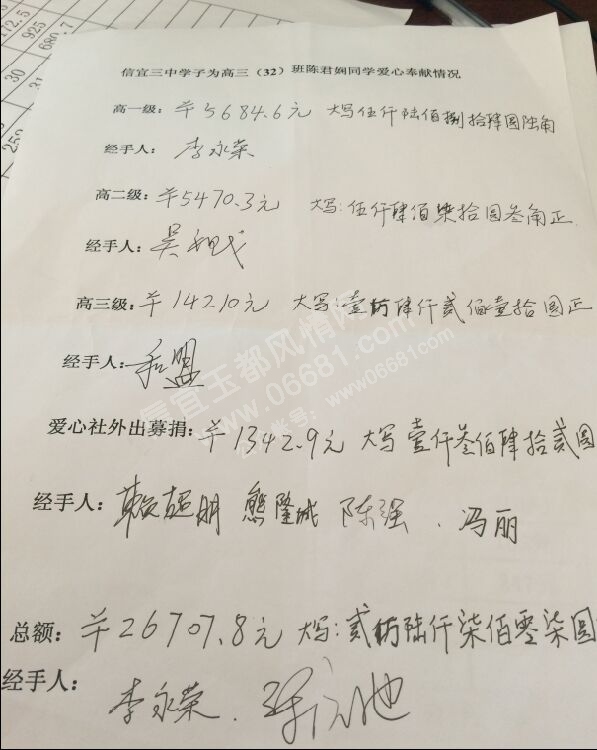 172.5
925
680.7
30
931
250
信宜三中学子为高三（32）班陈君娴同学爱心奉献情况
高一级：￥5684.6元 大写伍仟陆佰捌拾肆圆陆角
经手人：李永荣
高二级：￥5470.3元 大写：伍仟肆佰柒拾圆叁角正
经手人：吴
高三级：￥14210元 大写：壹萬肆仟贰佰壹拾圆正
经手人：
爱心社外出募捐：￥1342.9元 大写壹仟叁佰肆拾贰圆
经手人：赖超明 熊隆城 陈强．冯丽
总额：￥26707.8元 大写：贰萬陆仟柒佰零柒圆
经手人：李永荣．
信宜玉都风情网
www.06681.com
账号：www06681com